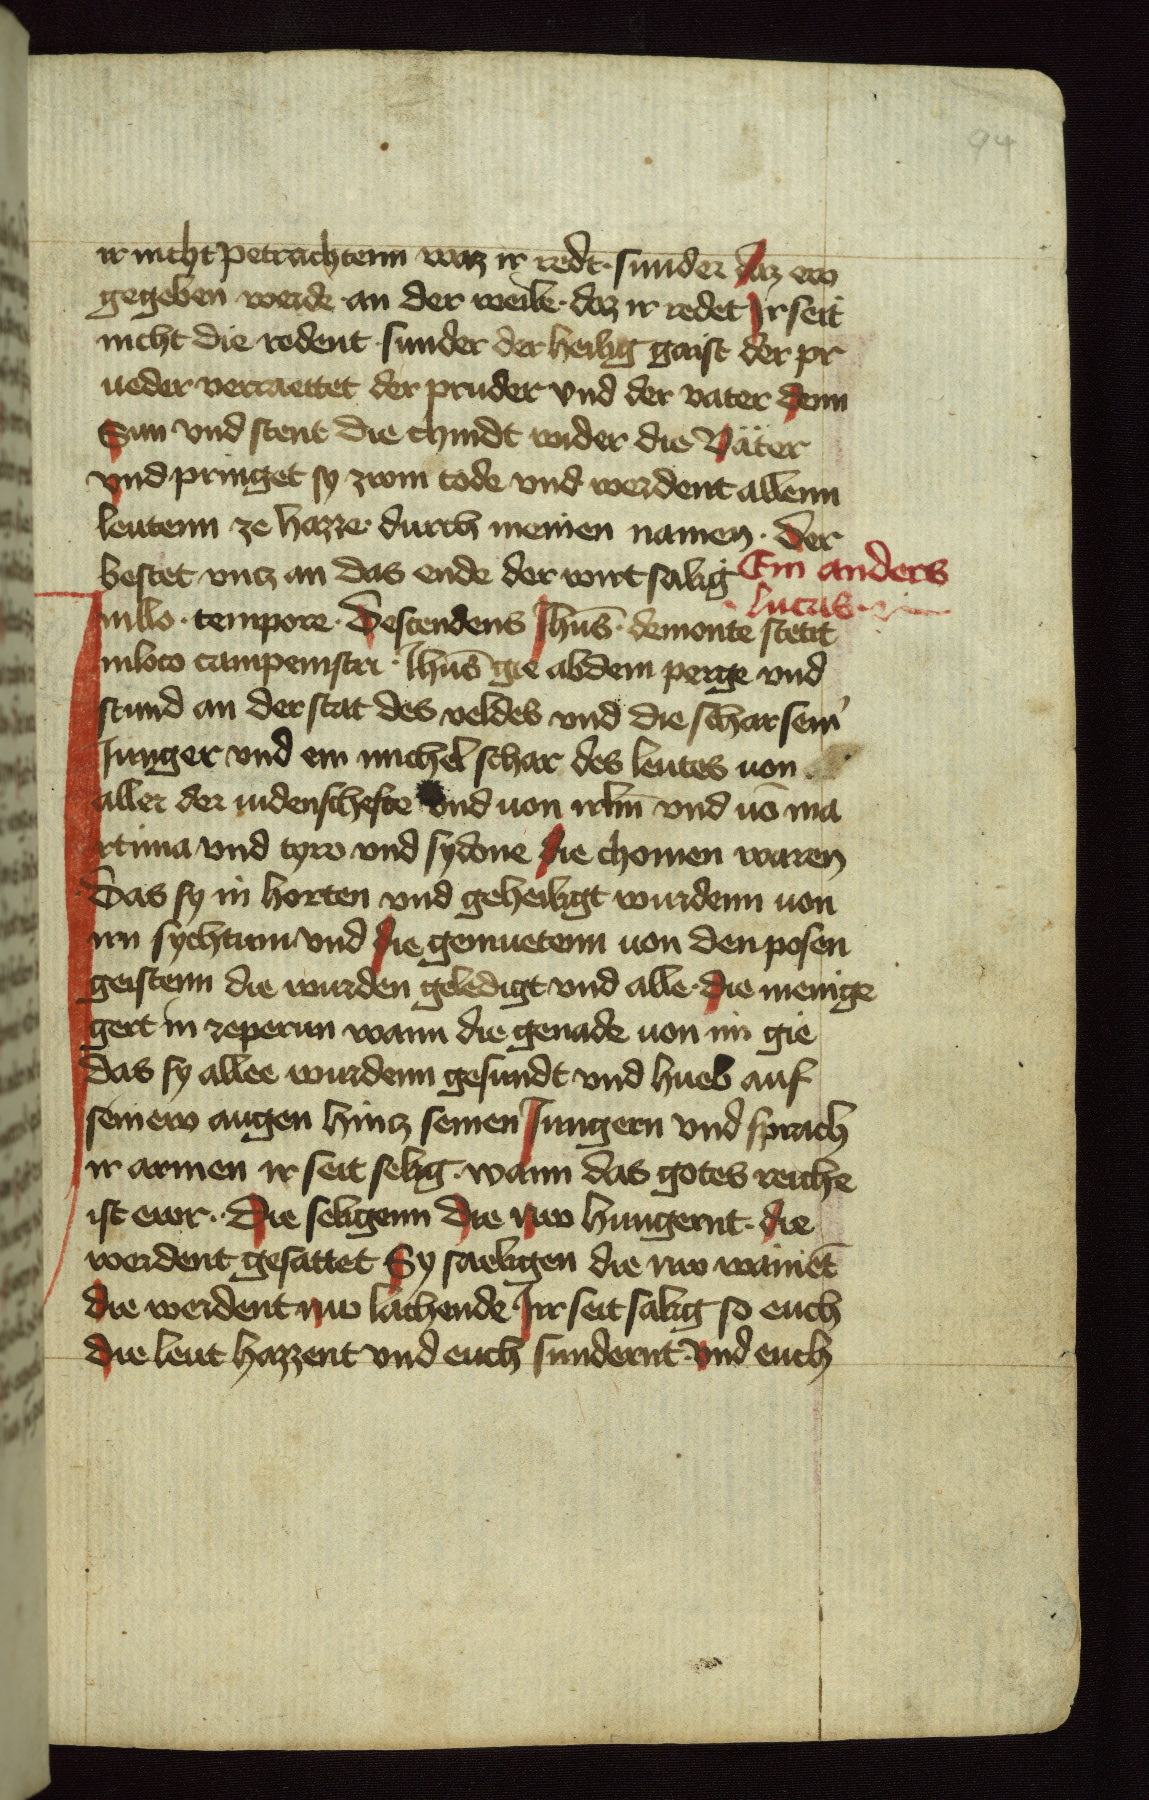 94
ir nicht petrachtenn waz ir redt · sunder daz ew
gegeben werde · an der weile · daz ir redet Ir seit
nicht die redent · sunder der heilig gaist der pr
ueder verraettet der pruder vnd der vater denn
Sun vnd stent die chindt wider die Väter
vnd pringet sy zwm tode vnd werdent allenn
leutenn ze hazze · durch meinen namen · der
bestet vncz an das ende der wirt salig Ein anders
Lucas ·
Inillo · tempore · Descendens Jhus̄ · demonte stetit
inloco campemstri · Jhus̄ gie abdem perge vnd
stund an der stat des veldes vnd die schar sein̕
Junger vnd ein michel schar des leutes uon
aller der iudenschefte vnd uon irlm̄ vnd uō ma
rtima vnd tyro vnd sydone die chomen waren
Das sy in horten vnd geheiligt wurdenn uon
irn sychtum vnd die gemuetenn uon den posen
geistenn die wurden geledigt vnd alle · die menige
gert in zeperurn wann die genade uon im gie
das sy allee wurdenn gesundt vnd hueb auf
seinew augen hincz seinen Jungern vnd sprach
ir armen ir seit selig · wann das gotes reiche
ist ewr · Die seligenn die nw hungernt · die
werdent gesattet Sy saeligen die nw wainēt
die werdent nw lachende Jir seit salig so euch
die leut hazzent vnd euch sundernt · vnd euch